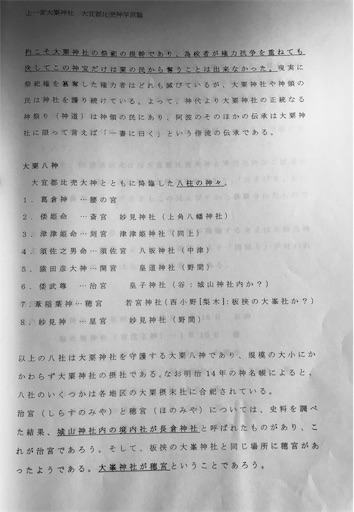 上一宮大粟神社 大宜都比売神
約こそ大粟神社の祭祀の根幹であり、為政者が権力抗争を重ねても
決してこの神宝だけは粟の民から奪うことは出来なかった。現実に
祭祀権を簒奪した権力者はどれも滅びているが、大粟神社や神領の
民は神社を護り続けている。よって、神代より大粟神社の正統なる
神祭り(神道)は神領の民にあり、阿波のそのほかの伝承は大粟神
社に限って言えば「一書に曰く」という傍流の伝承である。
大粟八神
大宜都比売大神とともに降臨した八柱の神々。
1.葛倉神…腰の宮
2.倭姫命…斎宮 妙見神社(上角八幡神社)
3.津津姫命…刻宮 津津姫神社(同上)
4.須佐之男命…須佐宮 八坂神社(中津)
5.猿田彦大神…開宮 皇道神社(野間)
6.倭武尊…治宮 皇子神社(谷:城山神社内か?)
7.葦稲葉神…穂宮 若宮神社(西小野[梨木]:板挟の大峯社か?)
8.妙見神…星宮 妙見神社(野間)
以上の八社は大粟神社を守護する大粟八神であり、規模の大小にか
かわらず大粟神社の摂社である。なお明治14年の神名帳によると、
八社のいくつかは各地区の大粟摂末社に合祀されている。
治宮(しらすのみや)と穂宮(ほのみや)については、史料を調べ
た結果、城山神社内の境内社が長倉神社と呼ばれたものがあり、こ
れが治宮であろう。そして、板挟の大峯神社と同じ場所に穂宮があ
ったようである。大峯神社が穂宮ということであろう。